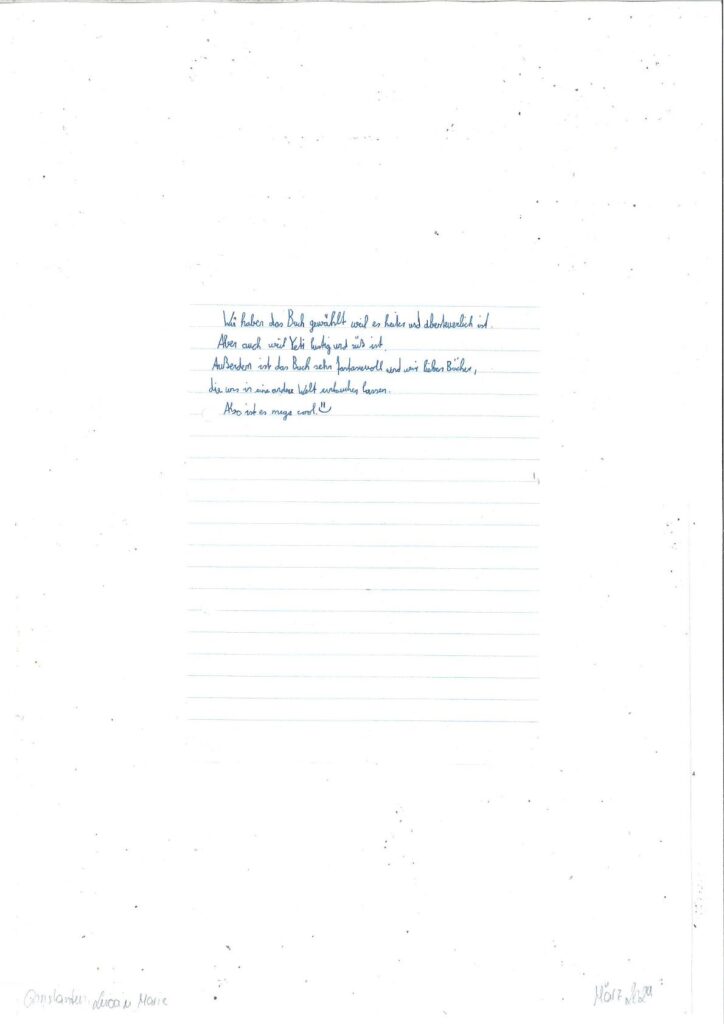 Wir haben das Buch gewählt weil es heiter und abenteuerlich ist.
Aber auch weil Yeti lustig und süß ist.
Außerdem ist das Buch sehr fantasievoll und wir lieben Bücher,
die uns in eine andere Welt lassen.
Also ist es mega cool.
Marie
März